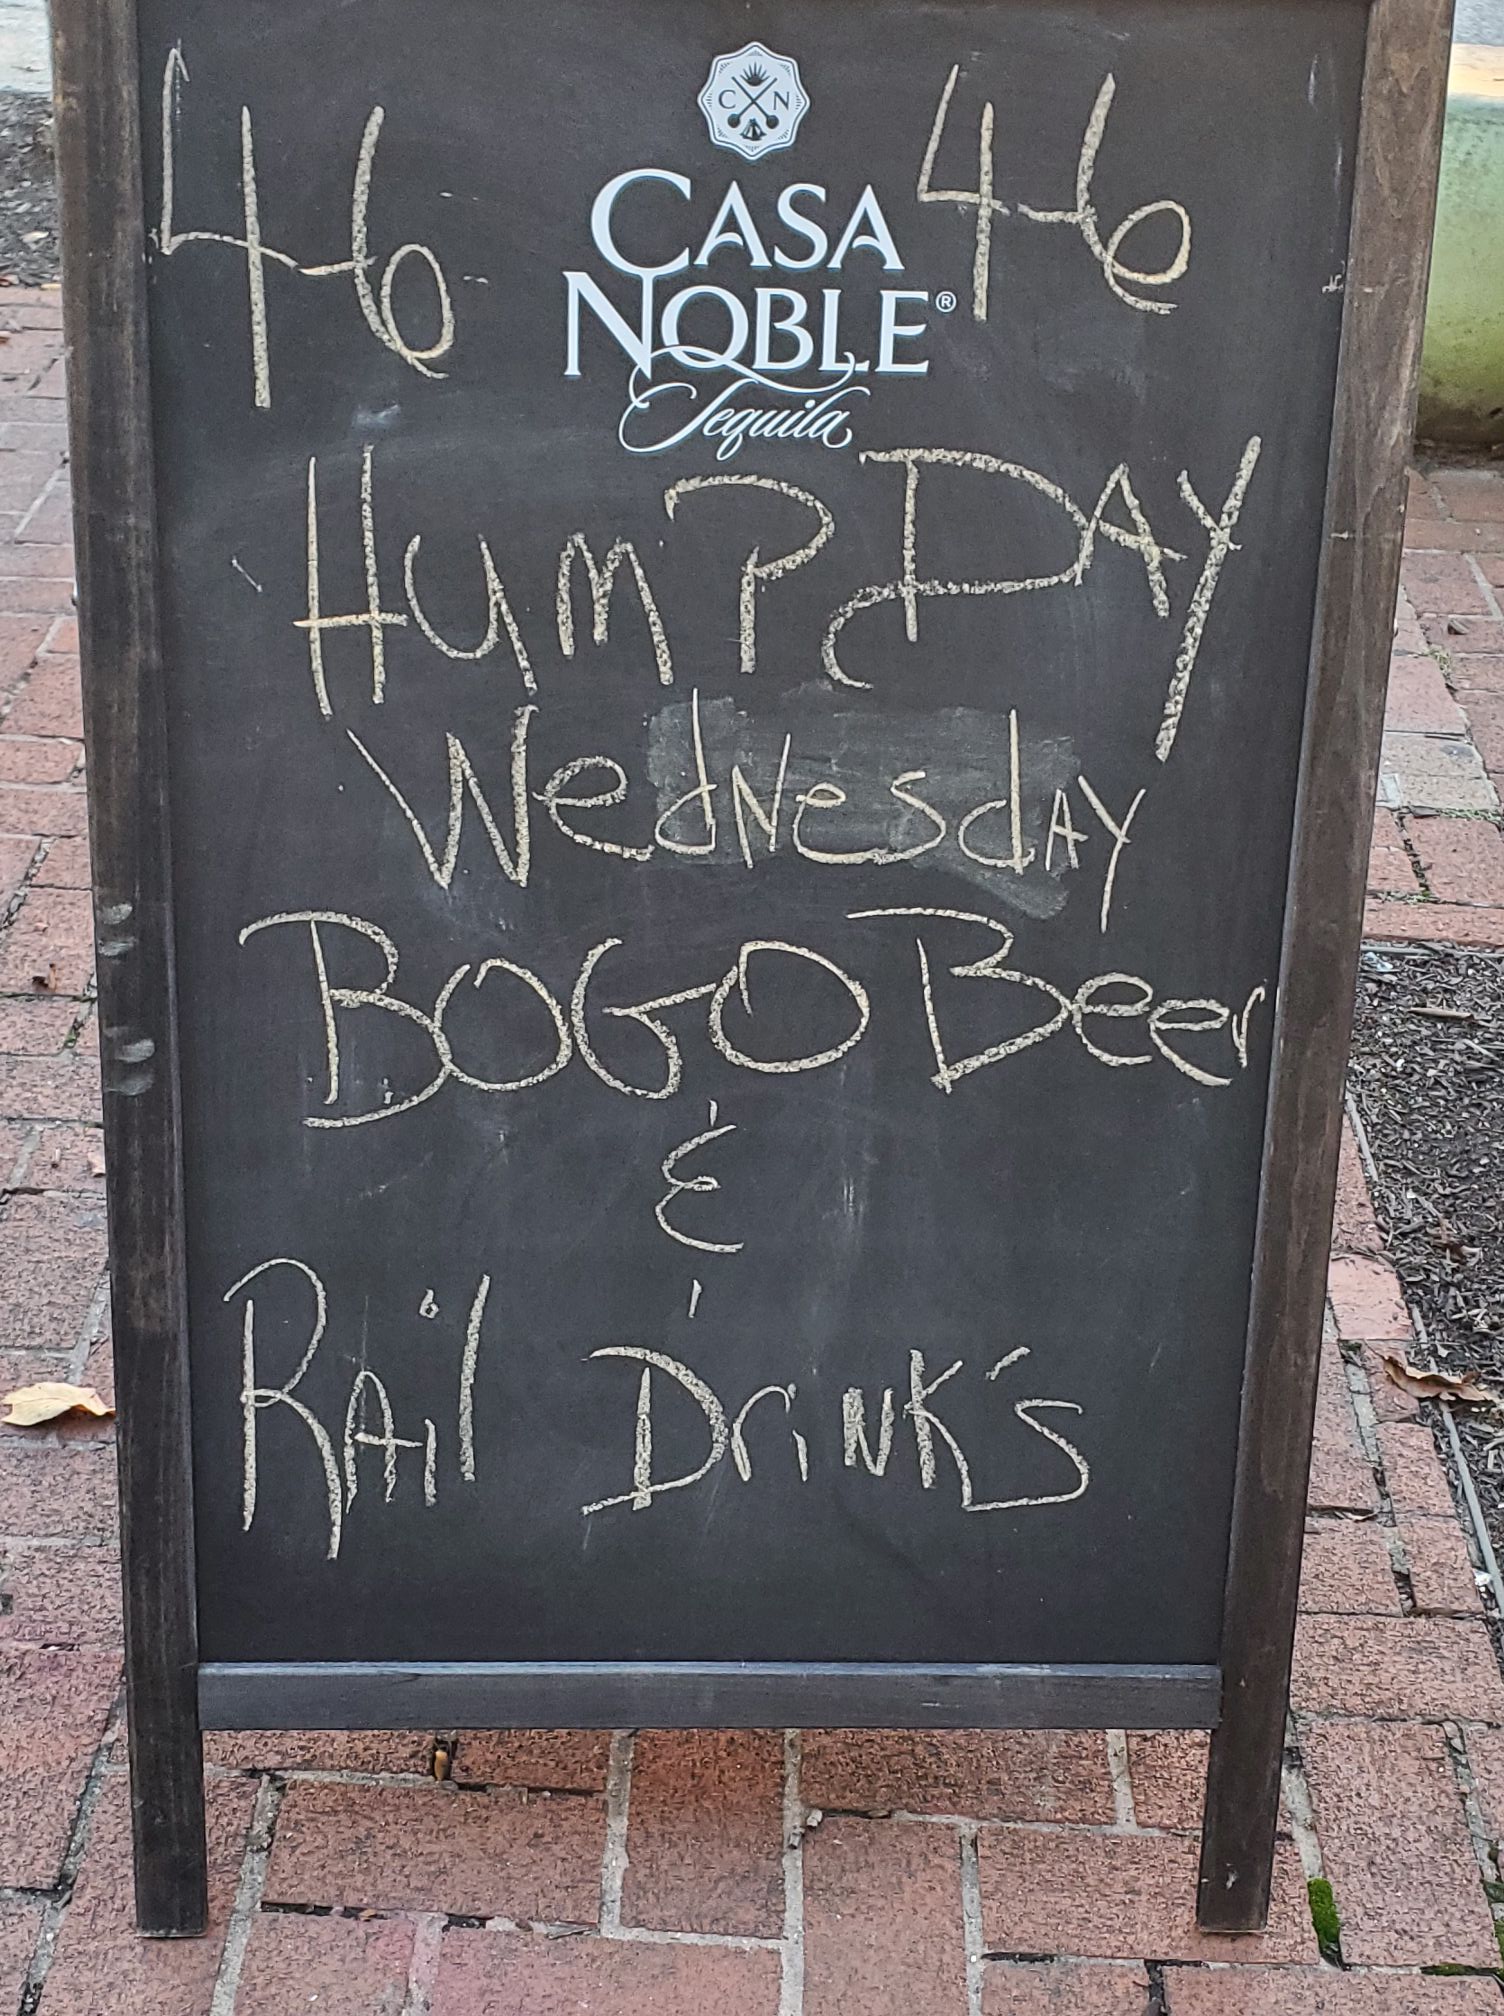 C N
46 CASA 46
NOBLE®
Tequila
HUMP DAY
WedNesdAY
BOGO Beer
&
RAil DriNK's